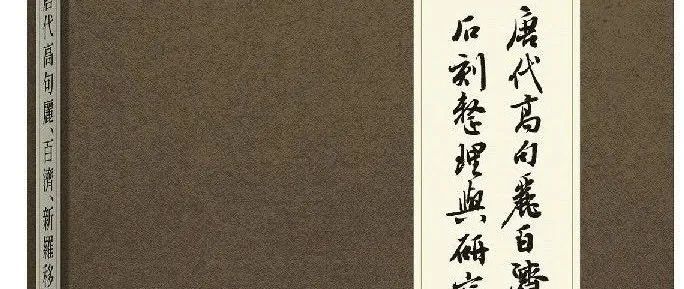 唐代高句麗百濟
石刻整理與研
代高句麗、百濟、新羅移